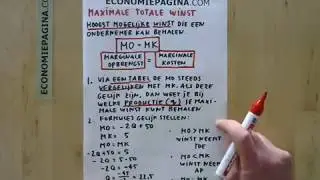 ECONOMIEPAGINA.COM
MAXIMALE TOTALE WINST
HOOGST MOGELIJKE WINST DIE EEN
ONDERNEMER KAN BEHALEN.
MO = MK
MARGINALE OPBRENGST = MARGINALE KOSTEN
1. VIA EEN TABEL DE MO STEEDS
VERGELIJKEN MET MK. ALS DEZE
GELIJK ZIJN, DAN WEET JE BIJ
WELKE PRODUCTIE (q) JE MAXI-
MALE WINST KUNT BEHALEN
2. FORMULES GELIJK STELLEN:
MO = -2Q + 50
MK = 5
-2Q + 50 = 5
-2Q = 5-50
-2Q = -45
Q = -45/-2 = 22.5
MO > MK
WINST NEEMT
TOE
MO < MK
WINST NEEMT
AF
MO = MK